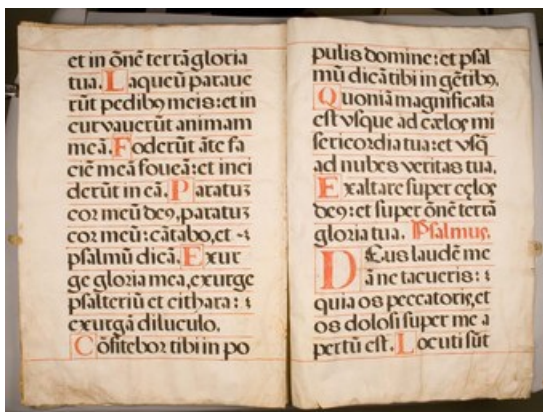 et in õnẽ terrã gloria
tua. Laqueũ paraue
rũt pedibꝰ meis: et in
curvauerũt animam
meã. Foderũt ãte fa
ciẽ meã foueã: et inci
derũt in eã. Paratuȝ
cor meũ deꝰ, paratuȝ
cor meũ: cãtabo, et
psalmũ dicã. Exur
ge gloria mea, exurge
psalteriũ et cithara:
exurgã diluculo.
Cõfitebor tibi in po
pulis domine: et psal
mũ dicã tibi in gẽtibꝰ.
Quoniã magnificata
est vsque ad cęlos mi
sericordia tua: et vsq̃
ad nubes veritas tua.
Exaltare super cęlos
deꝰ: et super õnẽ terrã
gloria tua. Psalmus.
DEus laudẽ me
ã ne tacueris:
quia os peccatoris, et
os dolosi super me a
pertũ est. Locuti sũt